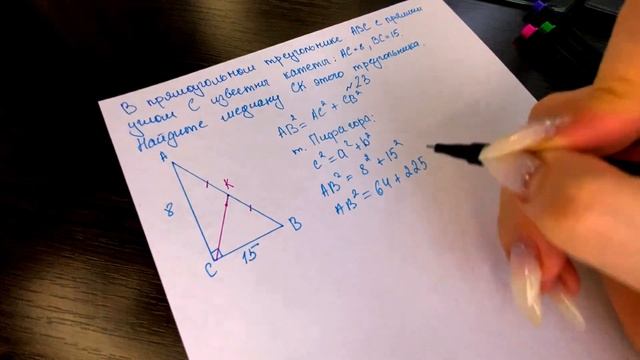 В прямоугольном треугольнике ABC с прямым
углом C известны катеты: AC=8, BC=15.
Найдите медиану CK этого треугольника.
~23
AB²=AC²+CB²
т. Пифагора:
c²=a²+b²
AB²=8²+15²
AB²=64+225
A
K
8
B
C
15